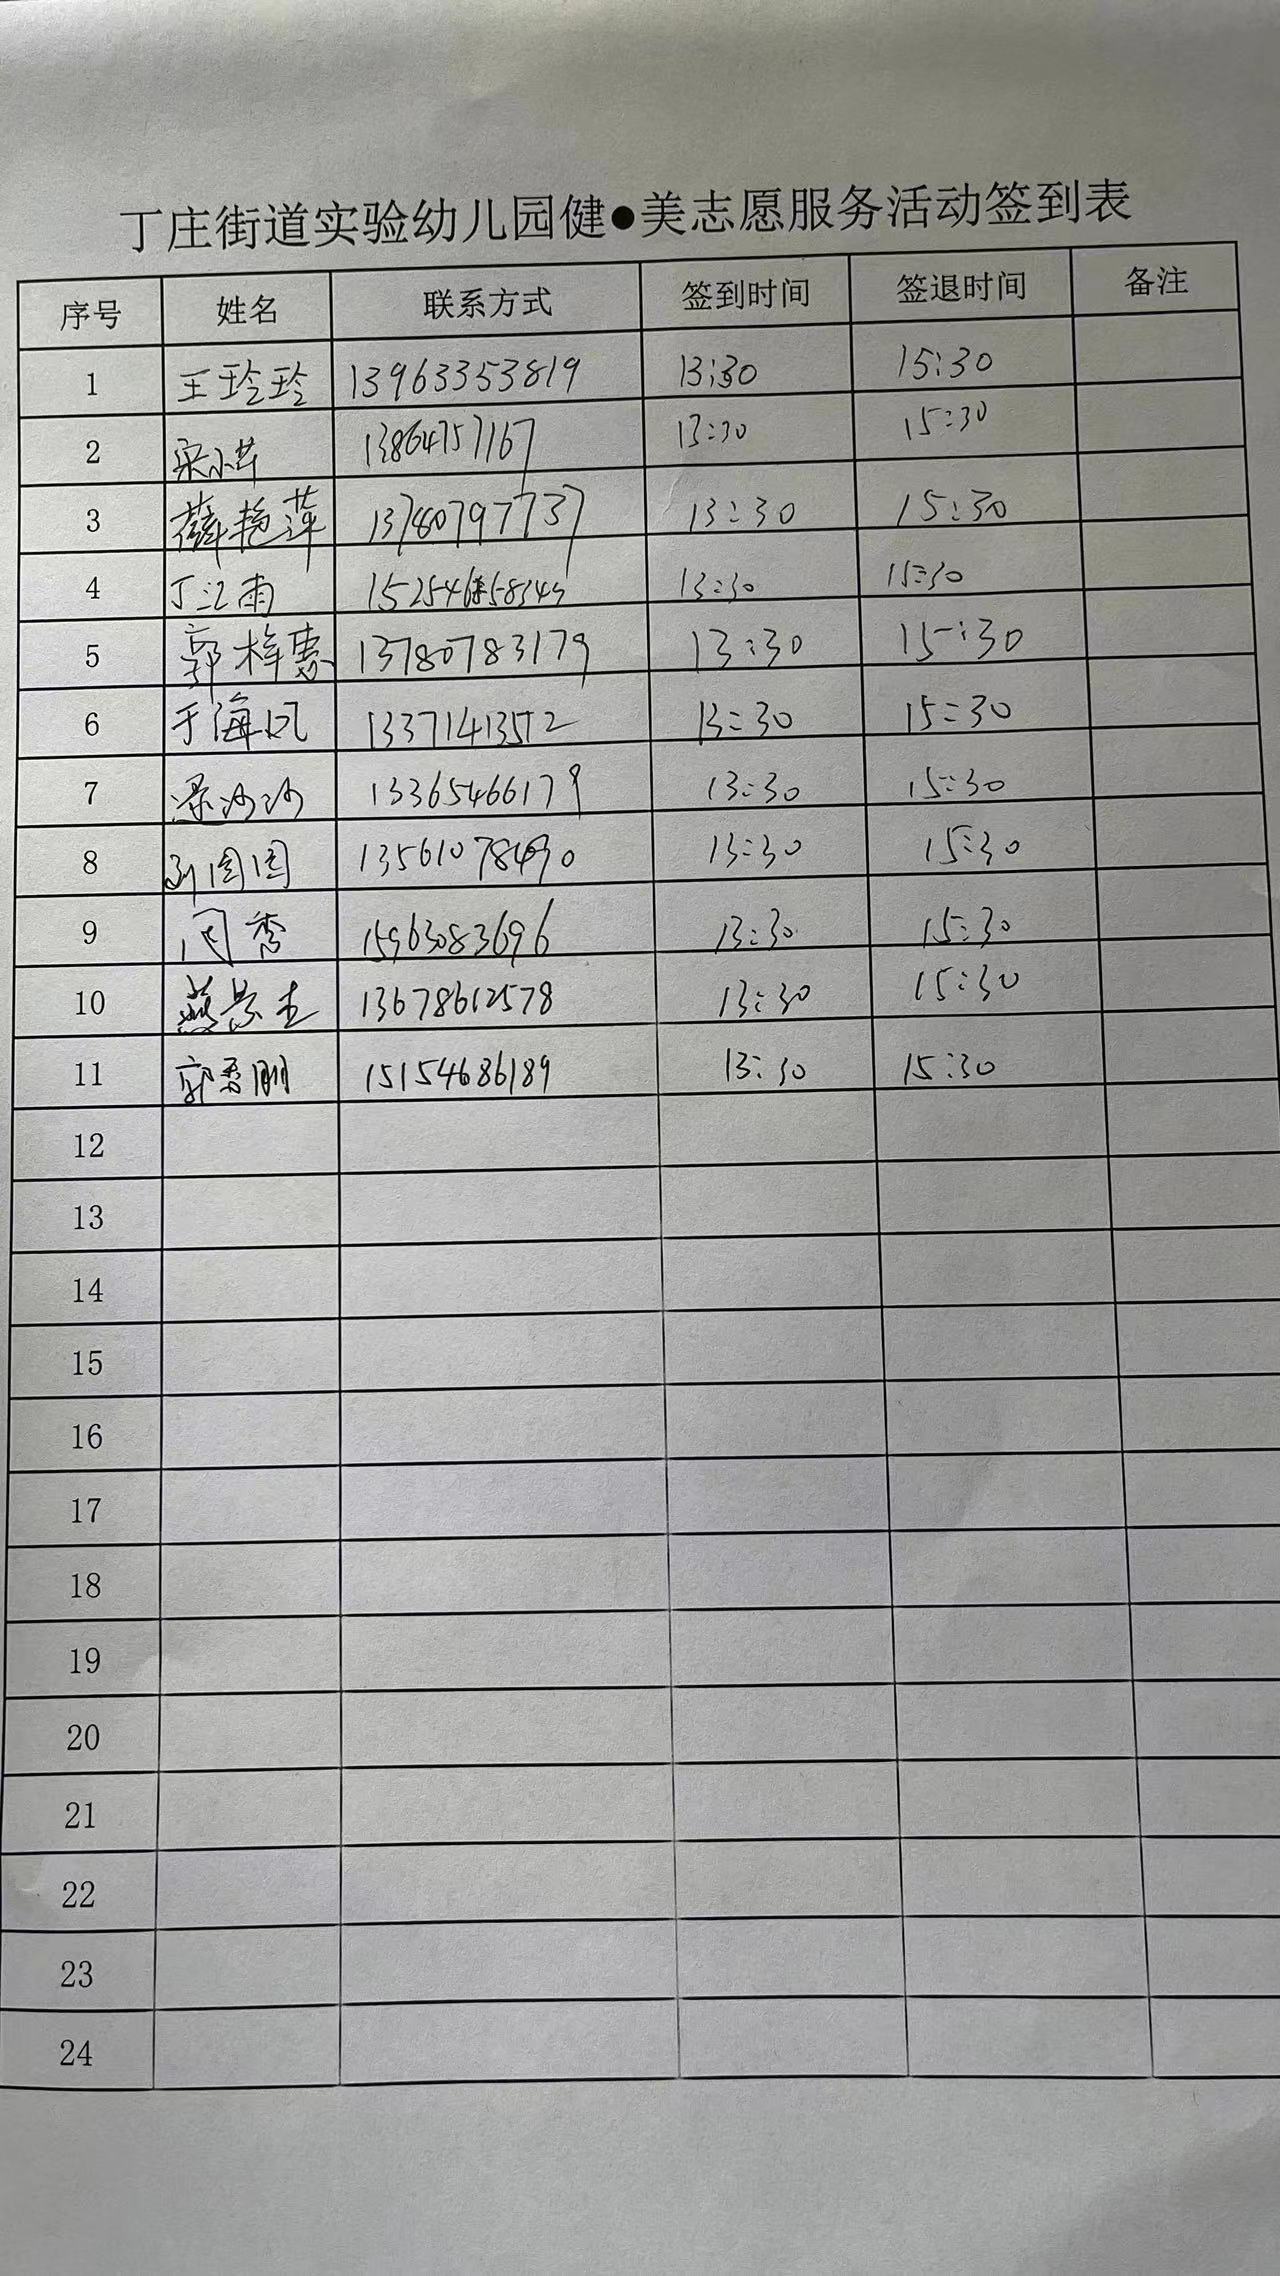 丁庄街道实验幼儿园健●美志愿服务活动签到表
序号 姓名 联系方式 签到时间 签退时间 备注
1 王玲玲 13963353819 13:30 15:30
2 13864757167 13:30 15:30
3 薛艳萍 13780797737 13:30 15:30
4 丁江雨 13:30 15:30
5 郭梓惠 13780783179 13:30 15:30
6 于海凤 13371413572 13:30 15:30
7 梁沙沙 13365466179 13:30 15:30
8 13561078490 13:30 15:30
9 闫秀 15963083696 13:30 15:30
10 燕景 13678612578 13:30 15:30
11 郭秀朋 15154686189 13:30 15:30
12
13
14
15
16
17
18
19
20
21
22
23
24